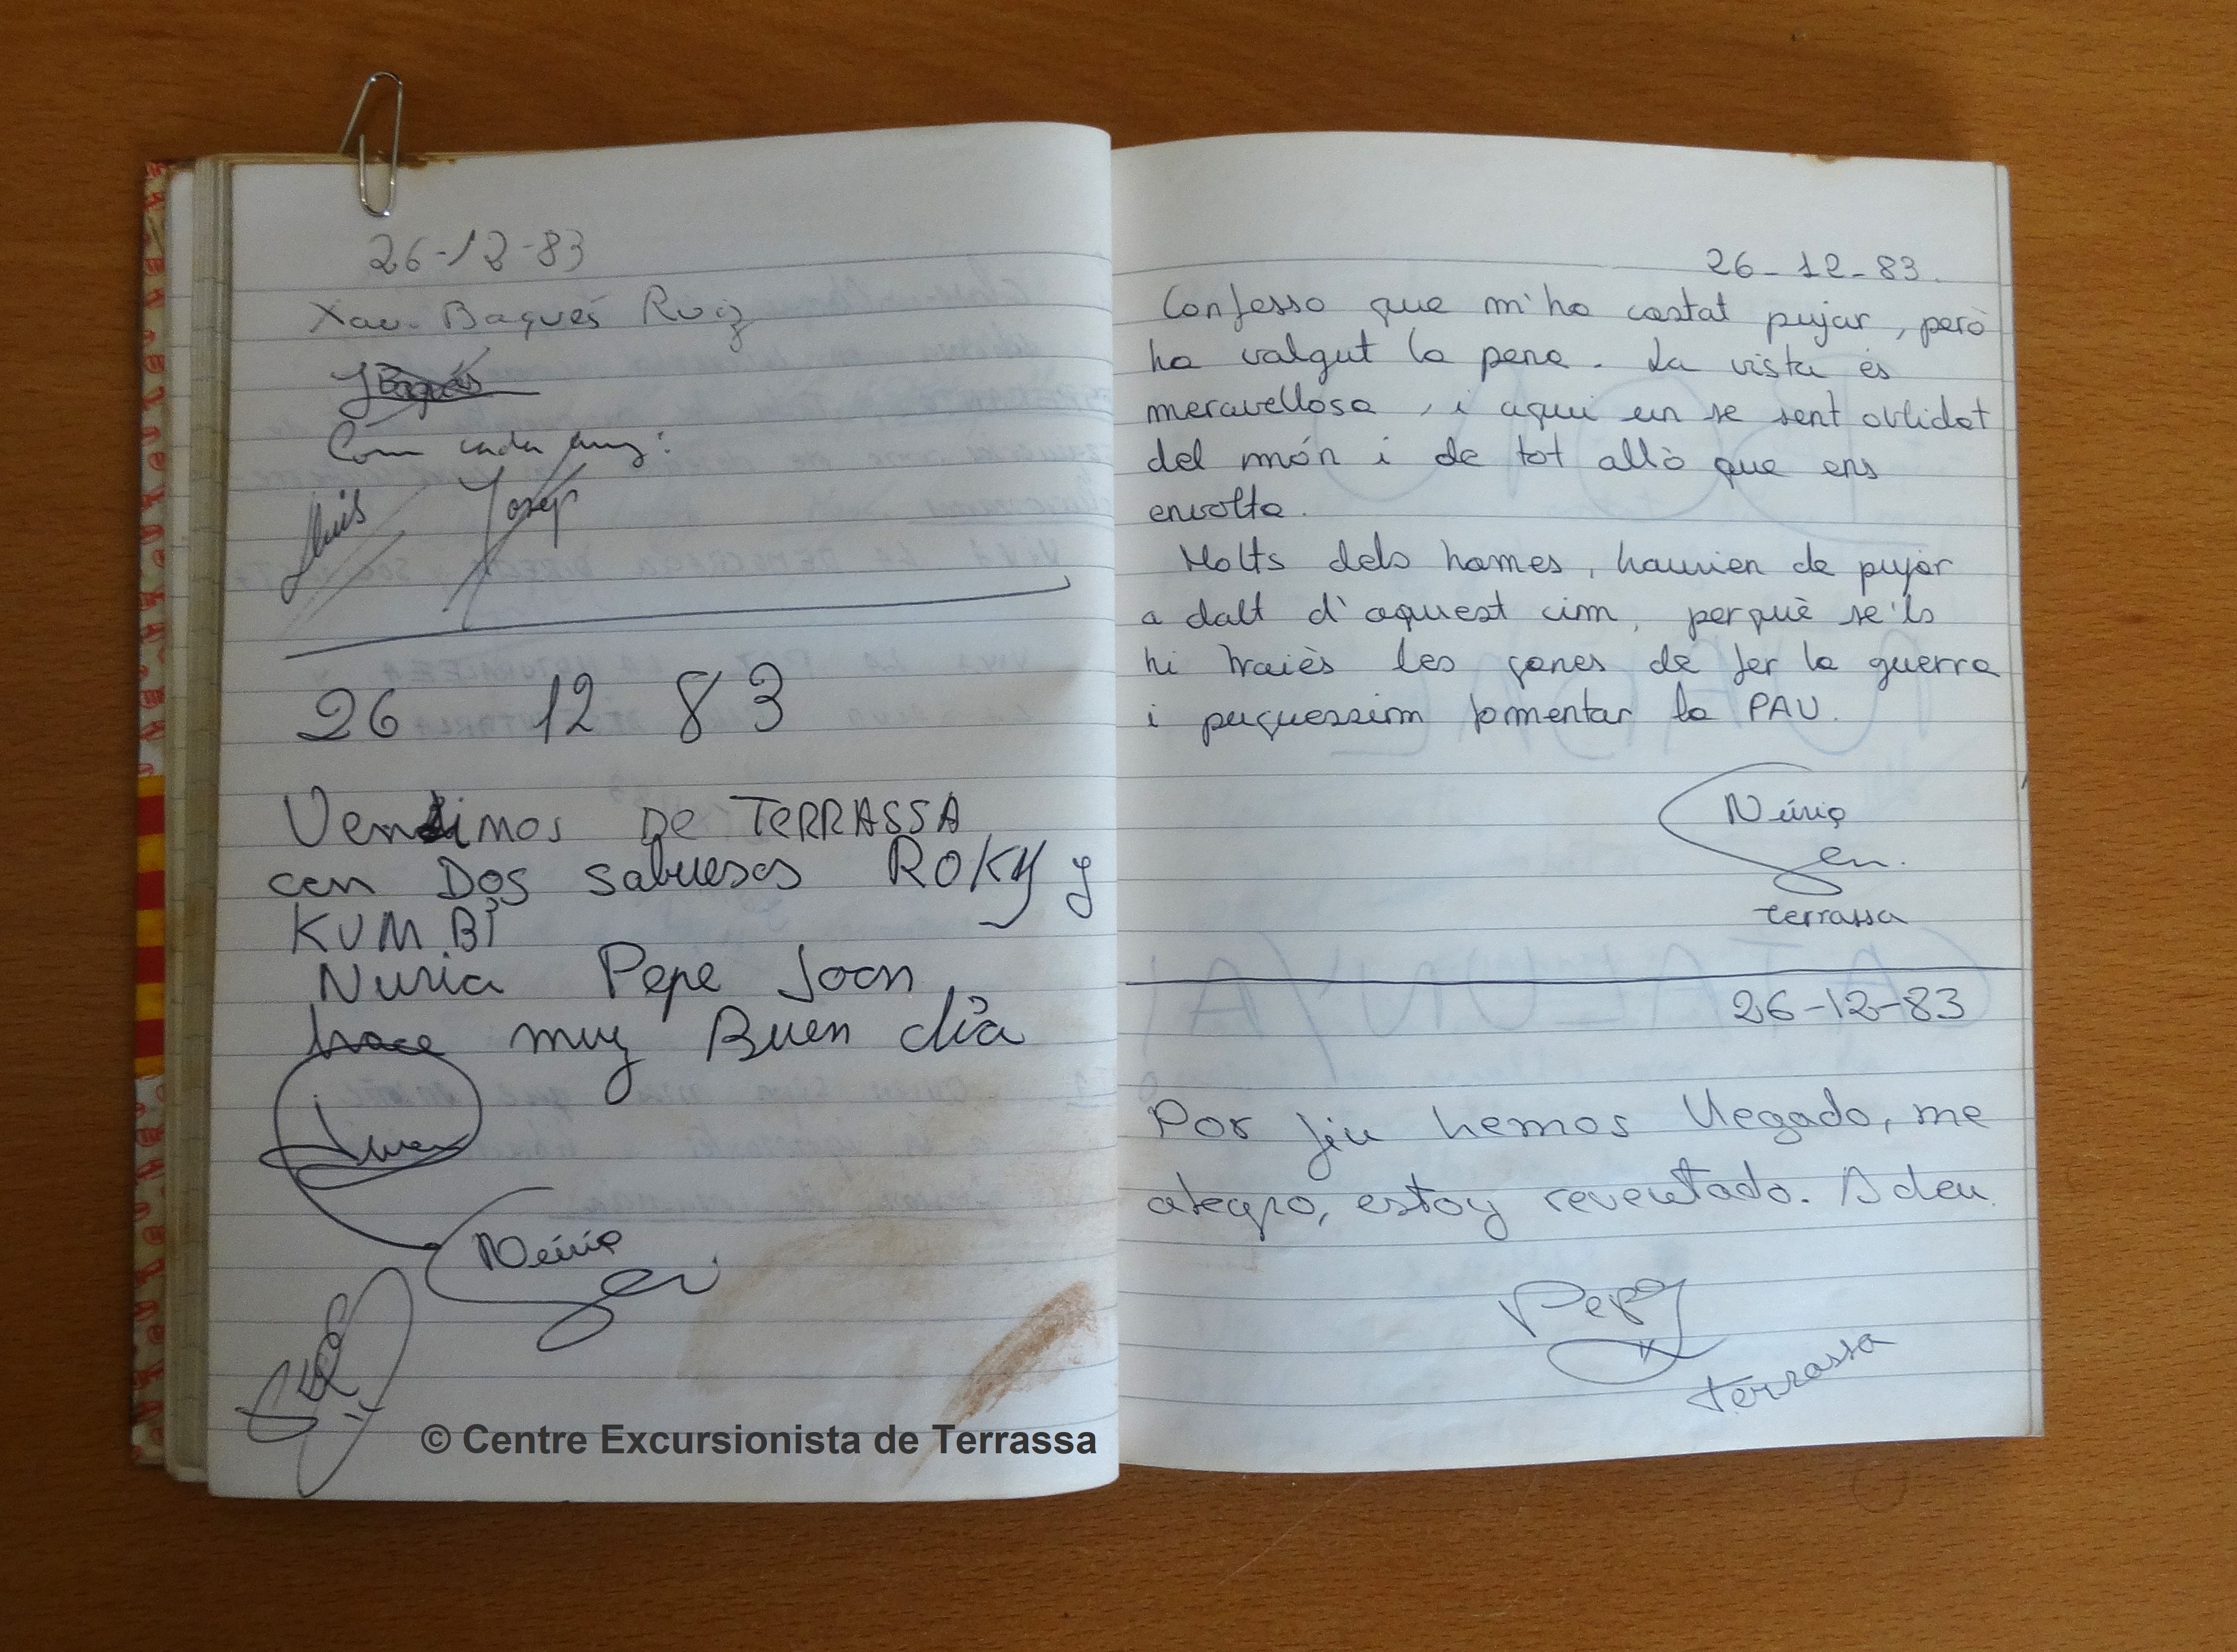 26-12-83
Xav. Baqués Ruiz
Com cada any:
Lluís Josep
26 12 83
Venimos DE TERRASSA
con Dos sabuesos ROKY y
KUMBI
Nuria Pepe Joan
hace muy Buen día
Joan
Núria
© Centre Excursionista de Terrassa
26-12-83.
Confesso que m'ha costat pujar, però
ha valgut la pena. La vista és
meravellosa, i aqui un se sent oblidat
del món i de tot allò que ens
envolta.
Molts dels homes, haurien de pujar
a dalt d'aquest cim, perquè se'ls
hi traiès les ganes de fer la guerra
i puguessim fomentar la PAU.
Núria
Terrassa
26-12-83
Por fin hemos llegado, me
alegro, estoy reventado. Adeu.
Pepe
Terrassa